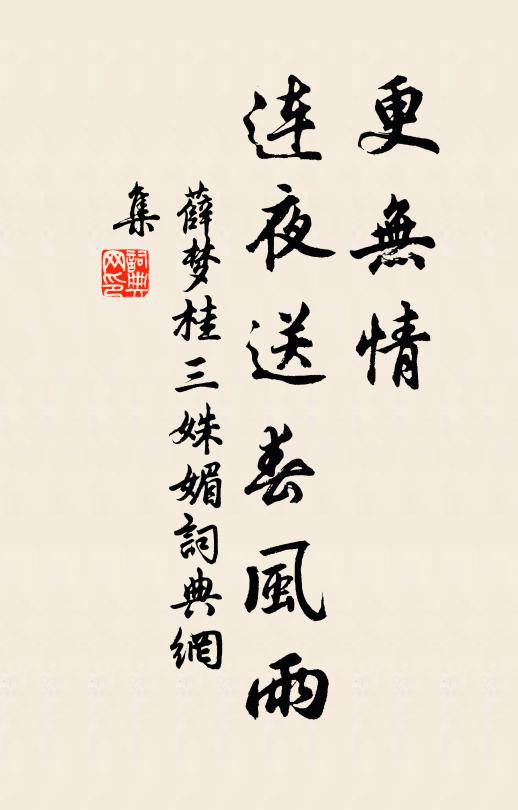 更無情
连夜送春風雨
薛梦桂三姝媚詞典網
集
詞典网印